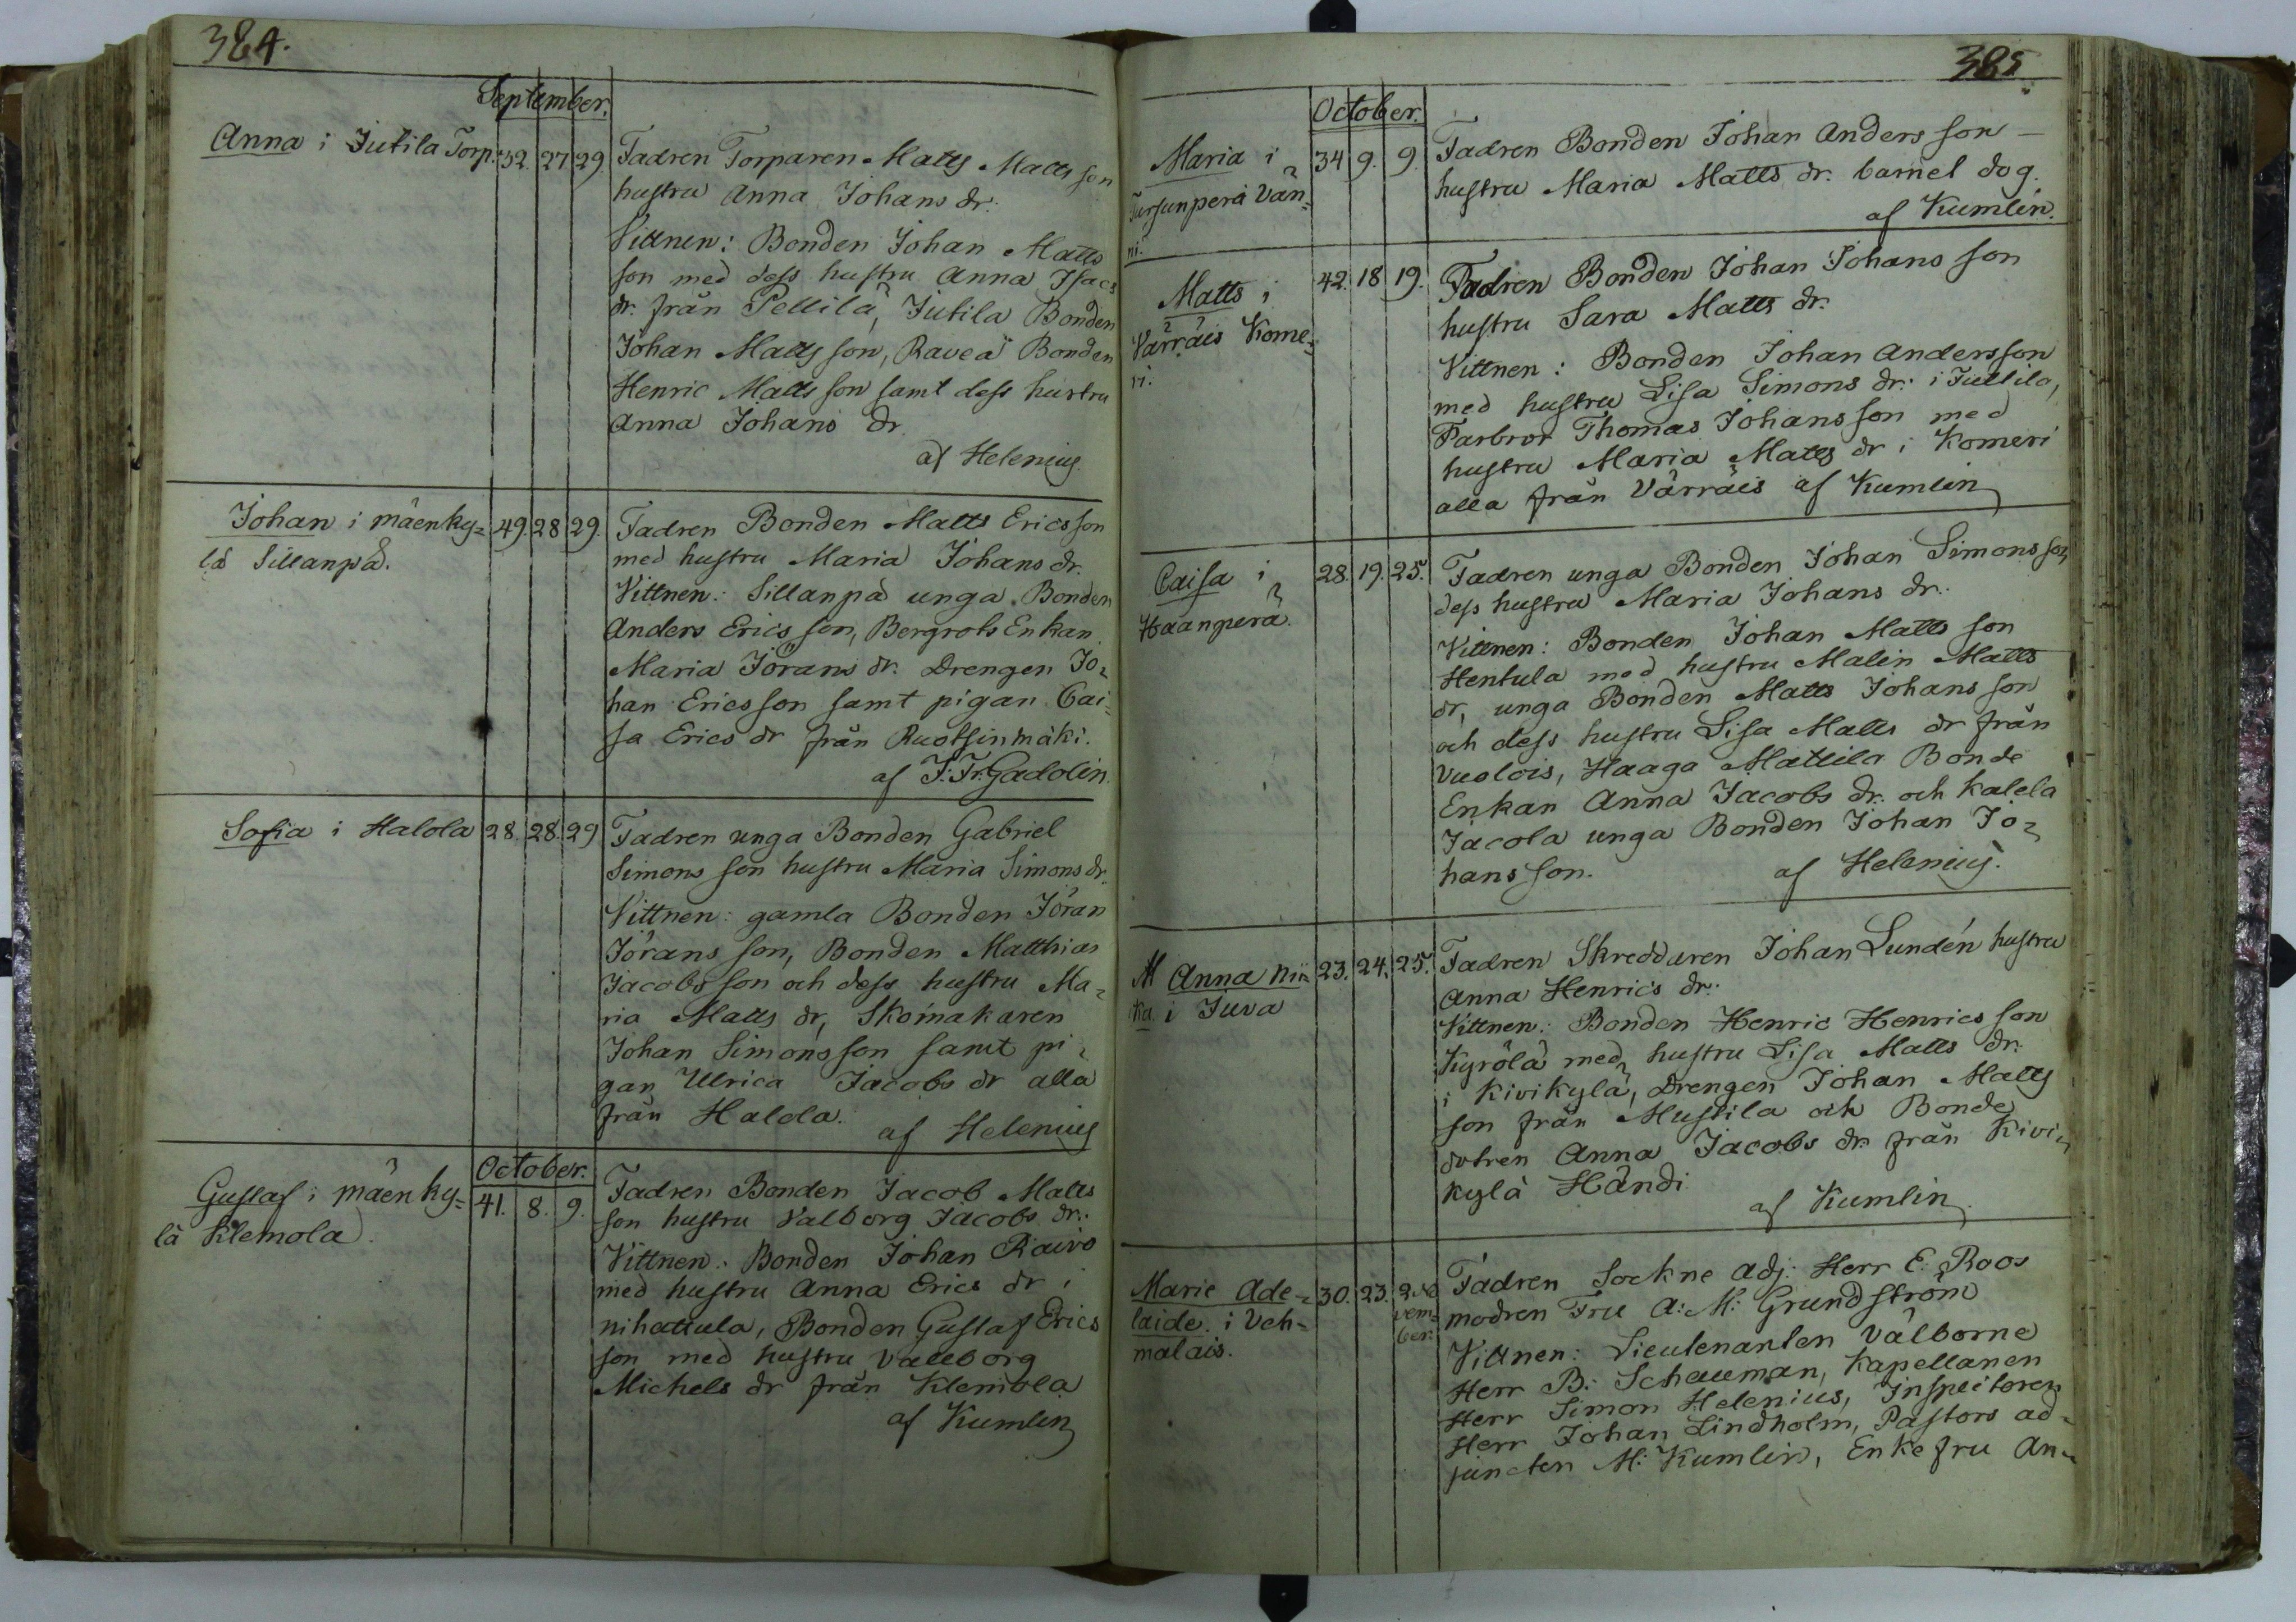 384.
September.
Anna i Jutila Torp. 32. 27. 29. Fadren Torparen Matts Matts son
hustru Anna Johans dr.
Vittnen: Bonden Johan Matts
son med dess hustru Anna Isacs
dr. från Pellilä, Jutila Bonden
Johan Matts son, Raveä Bonden
Henric Matts son samt dess hustru
Anna Johans dr
af Helenius
Johan i mäenky= 49. 28 29. Fadren Bonden Matts Ericsson
lä Sillanpä. med hustru Maria Johans dr.
Vittnen: Sillanpä unga Bonden
Anders Erics son, Bergrots Enkan
Maria Jörans dr. Drengen Jo=
han Ericsson samt pigan Cai=
sa Erics dr från Ruotsinmäki.
af J: Fr: Gadolin.
Sofia i Halola 28. 28. 29 Fadren unga Bonden Gabriel
Simons son hustru Maria Simons dr.
Vittnen: gamla Bonden Jöran
Jörans son, Bonden Matthias
Jacobs son och dess hustru Ma=
ria Matts dr, Skomakaren
Johan Simonsson samt pi=
gan Ulrica Jacobs dr alla
från Halola.
af Helenius
October.
Gustaf i mäenky= 41. 8. 9. Fadren Bonden Jacob Matts
lä Klemola. son hustru Valborg Jacobs dr.
Vittnen: Bonden Johan Raivo
med hustru Anna Erics dr i
nihattula, Bonden Gustaf Erics
son med hustru Vallborg
Michels dr från Klemola
af Kumlin
385
October.
Maria i 34 9. 9. Fadren Bonden Johan Anders son
Tursunperä Vän= hustru Maria Matts dr. barnet dog.
ni. af Kumlin.
Matts i 42. 18 19. Fadren Bonden Johan Johans son
Värräis Kome= hustru Sara Matts dr.
ri. Vittnen: Bonden Johan Andersson
med hustru Lisa Simons dr: i Juttila,
Farbror Thomas Johansson med
hustru Maria Matts dr i Komeri
alla från Värräis af Kumlin
Caisa i 28. 19. 25. Fadren unga Bonden Johan Simons son
Haanperä. dess hustru Maria Johans dr.
Vittnen: Bonden Johan Matts son
Hentula med hustru Malin Matts
dr, unga Bonden Matts Johans son
och dess hustru Lisa Matts dr från
Vuolois, Haaga Mattila Bonde
Enkan Anna Jacobs dr: och Kalela
Jacola unga Bonden Johan Jo=
hans son. af Helenius.
M Anna Nii= 23. 24. 25. Fadren Skreddaren Johan Lundén hustru
ka i Juva Anna Henrics dr:
Vittnen: Bonden Henric Henrics son
Kyrölä med hustru Lisa Matts dr:
i Kivikylä, Drengen Johan Matts
son från Mustila och Bonde
dotren Anna Jacobs dr: från Kivi=
kylä Händi
af Kumlin
Marie Ade= 30. 23. 2 No Fadren Sockne Adj: Herr E: Roos
laide i Veh= vem= modren Fru A: M: Grundström
malais. ber. Vittnen: Lieutenanten Välborne
Herr B: Schauman, Kapellanen
Herr Simon Helenius, Inspectoren
Herr Johan Lindholm, Pastors ad=
juncten M: Kumlin, Enkefru An=